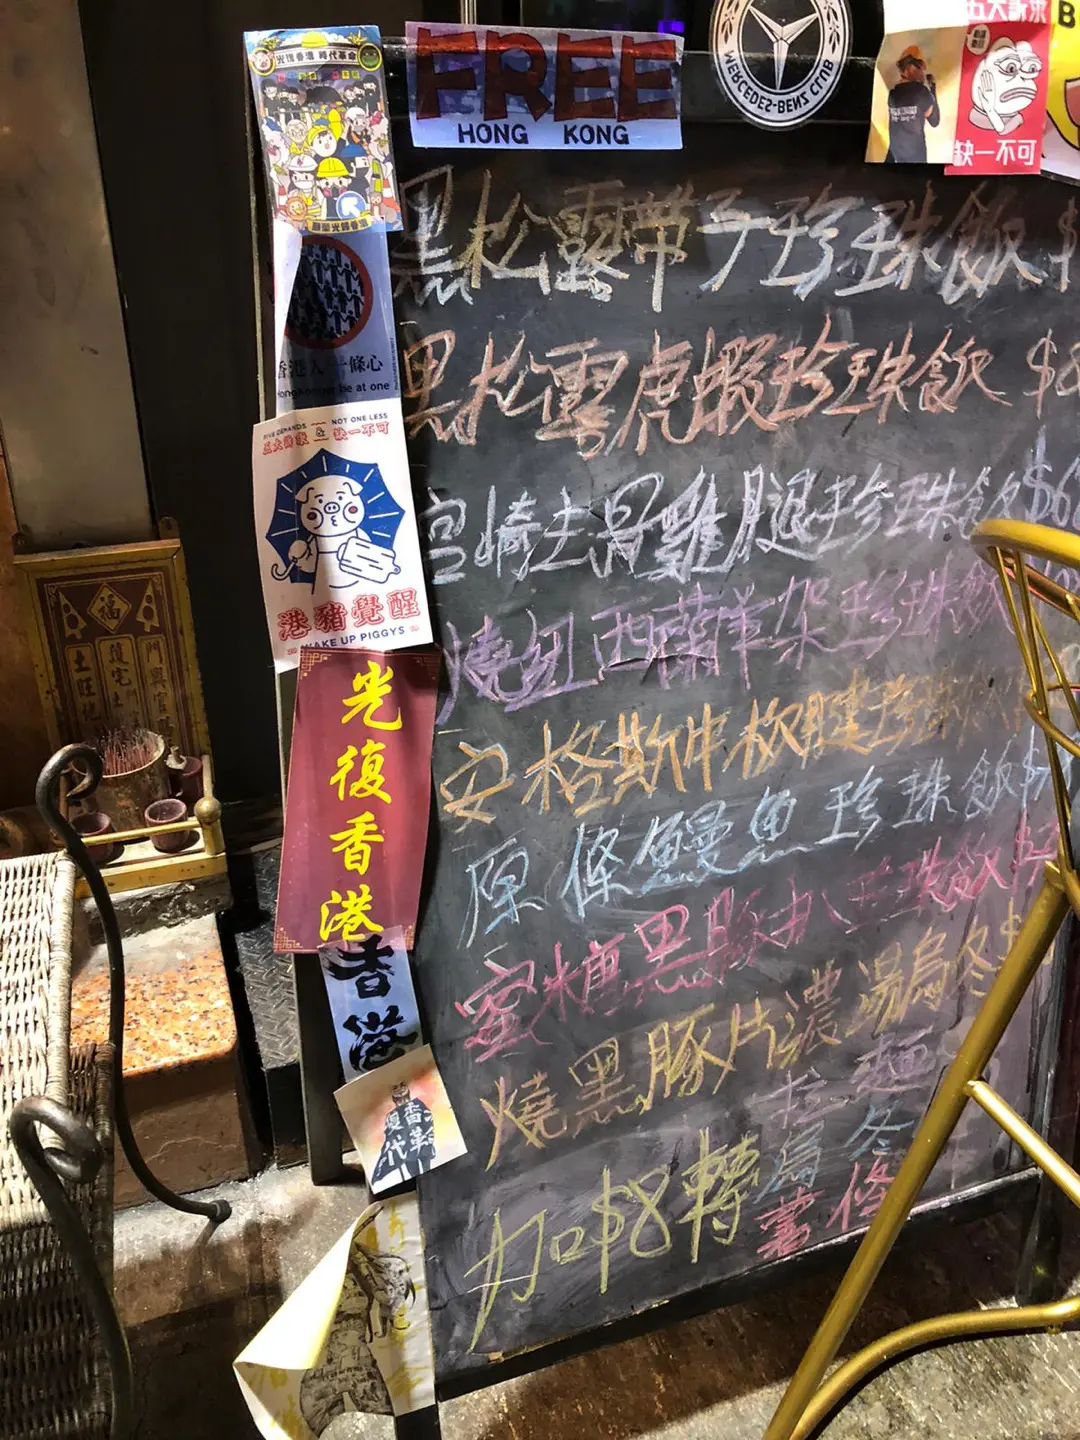 光復香港 時代革命
FREE
HONG KONG
MERCEDES-BENZ CLUB
五大訴求
缺一不可
B
願榮光歸香港
香港人一條心
Hongkonger be at one
FIVE DEMANDS & NOT ONE LESS
五大訴求 & 缺一不可
港豬覺醒
WAKE UP PIGGYS
光復香港
香港
黑松露帶子珍珠飯 $
黑松露虎蝦珍珠飯 $8
宮崎走得雞腿珍珠飯 $6
燒紐西蘭羊架珍珠飯
安格斯牛板腱珍珠飯
原條鰻魚珍珠飯 $
蜜糖黑豚扒珍珠飯 $
燒黑豚片濃湯烏冬 $
加 $8 轉
拉麵
烏冬
薯條
福